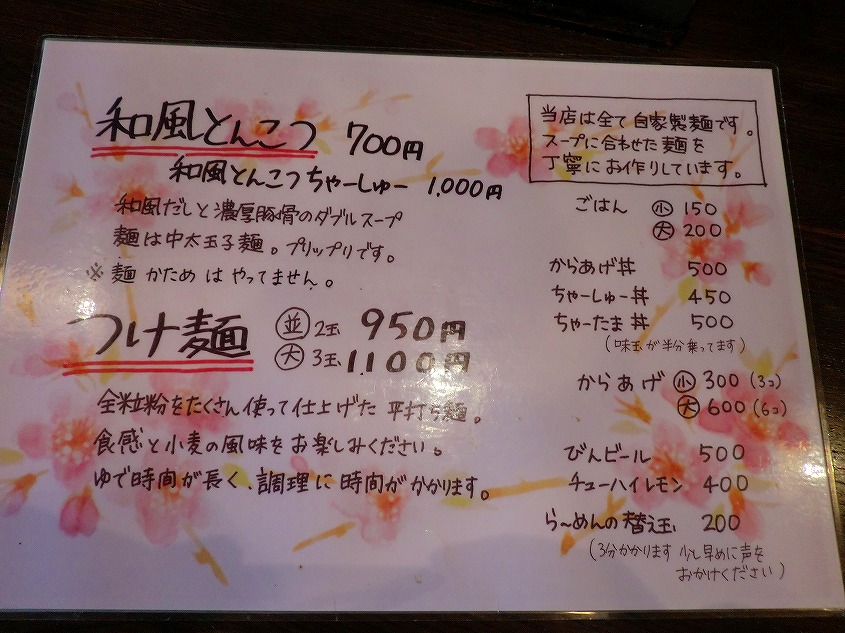 和風とんこつ 700円
和風とんこつちゃーしゅー 1,000円
和風だしと濃厚豚骨のダブルスープ
麺は中太玉子麺。プリップリです。
※ 麺かためはやってません。
つけ麺 並 2玉 950円
大 3玉 1,100円
全粒粉をたくさん使って仕上げた平打ち麺。
食感と小麦の風味をお楽しみください。
ゆで時間が長く、調理に時間がかかります。
当店は全て自家製麺です。
スープに合わせた麺を
丁寧にお作りしています。
ごはん 小 150
大 200
からあげ丼 500
ちゃーしゅー丼 450
ちゃーたま丼 500
(味玉が半分乗ってます)
からあげ 小 300 (3コ)
大 600 (6コ)
びんビール 500
チューハイレモン 400
ら〜めんの替え玉 200
(3分かかります 少し早めに声を
おかけください)